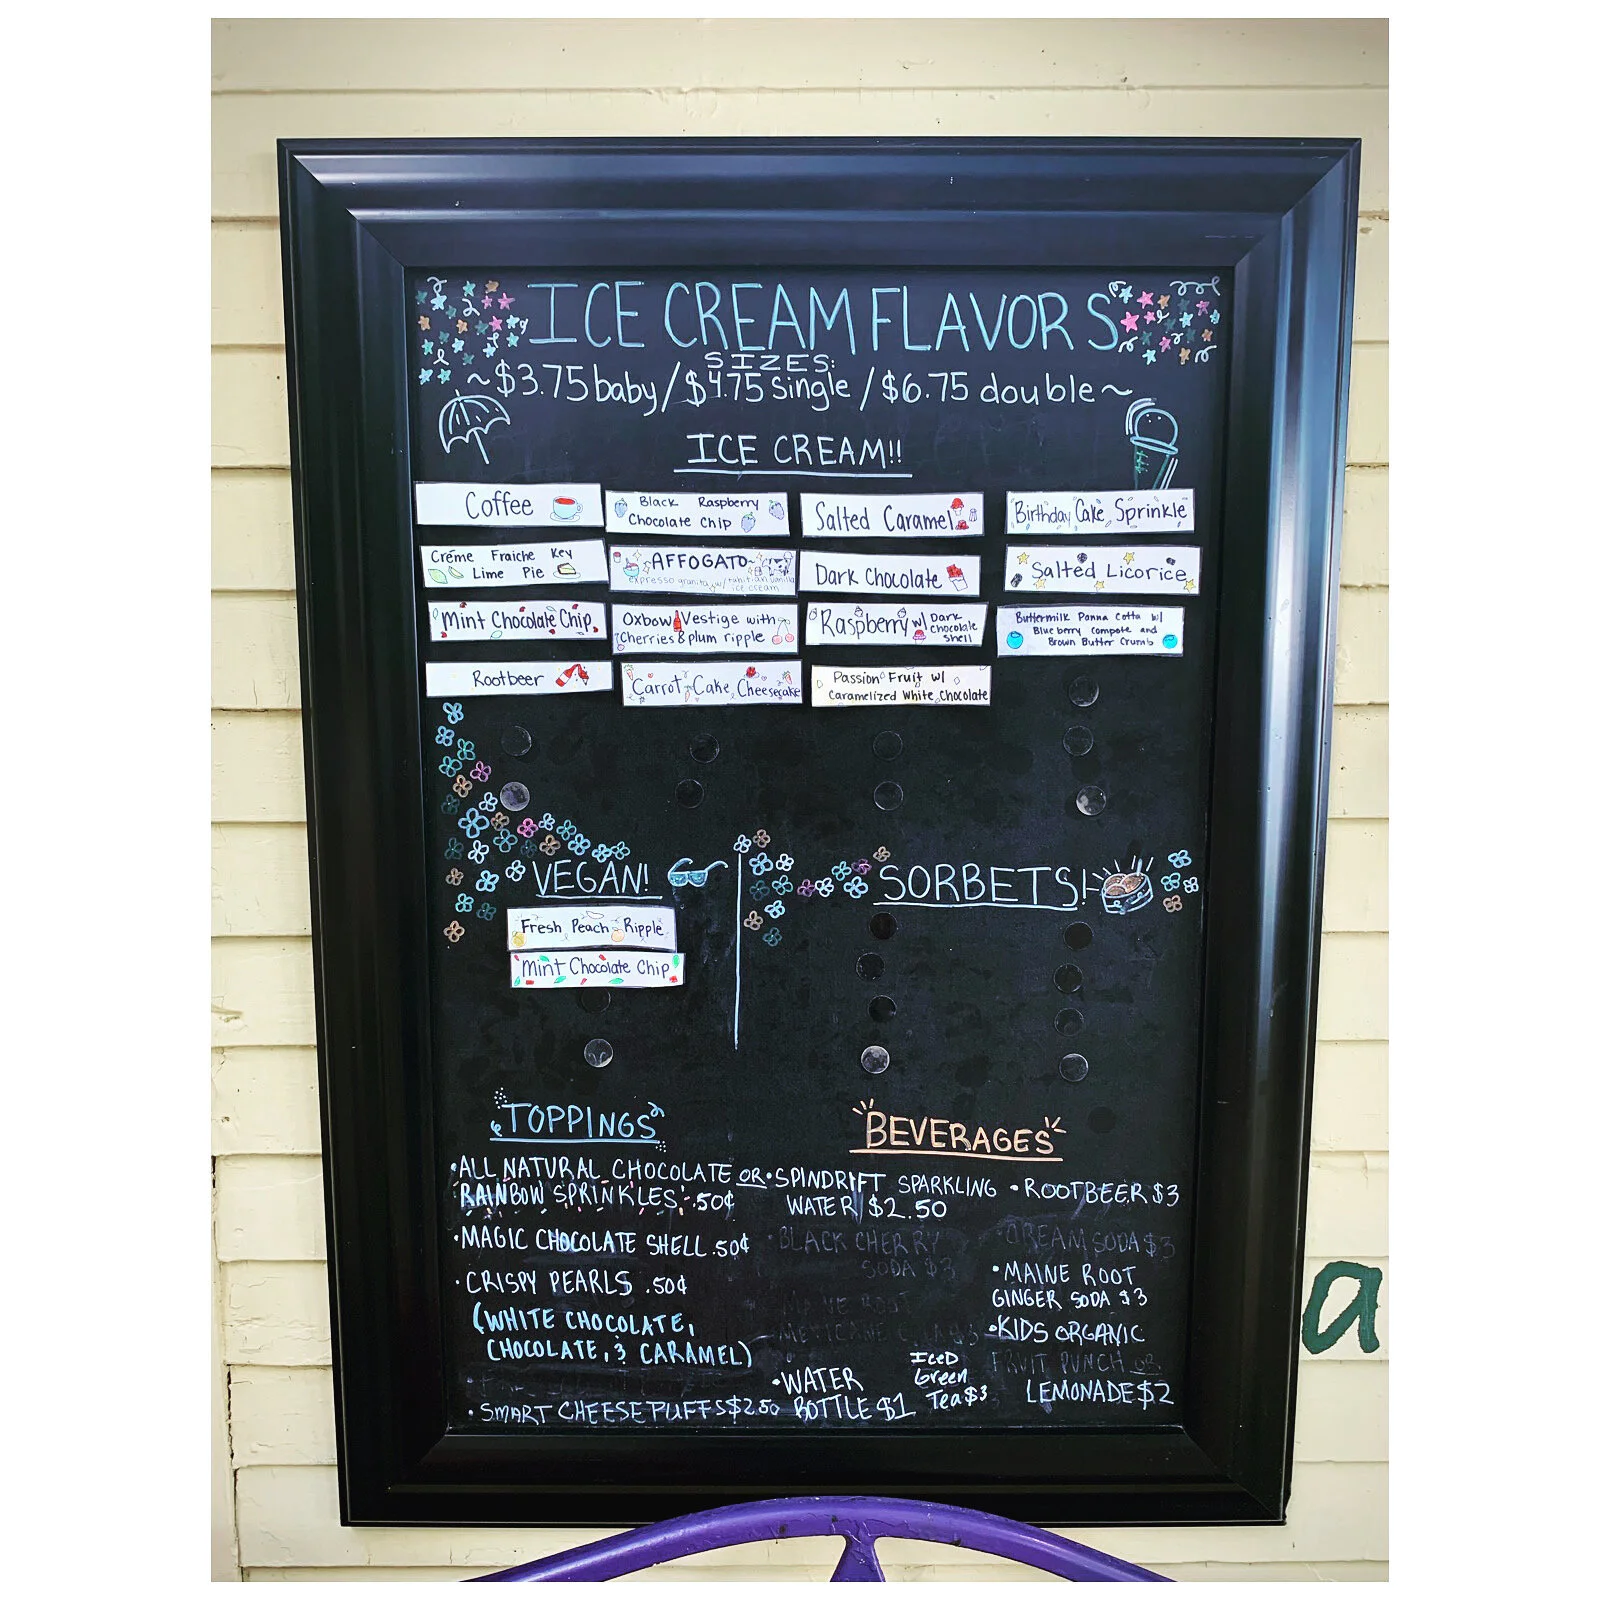 ICE CREAM FLAVORS
SIZES:
~$3.75 baby/$4.75 single/$6.75 double~
ICE CREAM!!
Coffee
Black Raspberry
Chocolate Chip
Salted Caramel
Birthday Cake Sprinkle
Créme Fraiche Key
Lime Pie
~AFFOGATO~
espresso granita w/ tahitian vanilla
ice cream
Dark Chocolate
Salted Licorice
Mint Chocolate Chip
Oxbow Vestige with
Cherries & plum ripple
Raspberry w/ Dark
chocolate
shell
Buttermilk Panna Cotta w/
Blueberry compote and
Brown Butter Crumb
Rootbeer
Carrot Cake Cheesecake
Passion Fruit w/
Caramelized White Chocolate
VEGAN!
Fresh Peach Ripple
Mint Chocolate Chip
SORBETS!
TOPPINGS
•ALL NATURAL CHOCOLATE OR
RAINBOW SPRINKLES .50¢
•MAGIC CHOCOLATE SHELL .50¢
•CRISPY PEARLS .50¢
(WHITE CHOCOLATE,
CHOCOLATE, & CARAMEL)
•SMART CHEESE PUFFS $2.50
BEVERAGES
•SPINDRIFT SPARKLING
WATER $2.50
•BLACK CHERRY
SODA $3
MAINE ROOT
•WATER
BOTTLE $1
ICED
Green
Tea $3
•ROOTBEER $3
•CREAM SODA $3
•MAINE ROOT
GINGER SODA $3
•KIDS ORGANIC
FRUIT PUNCH OR
LEMONADE $2
a